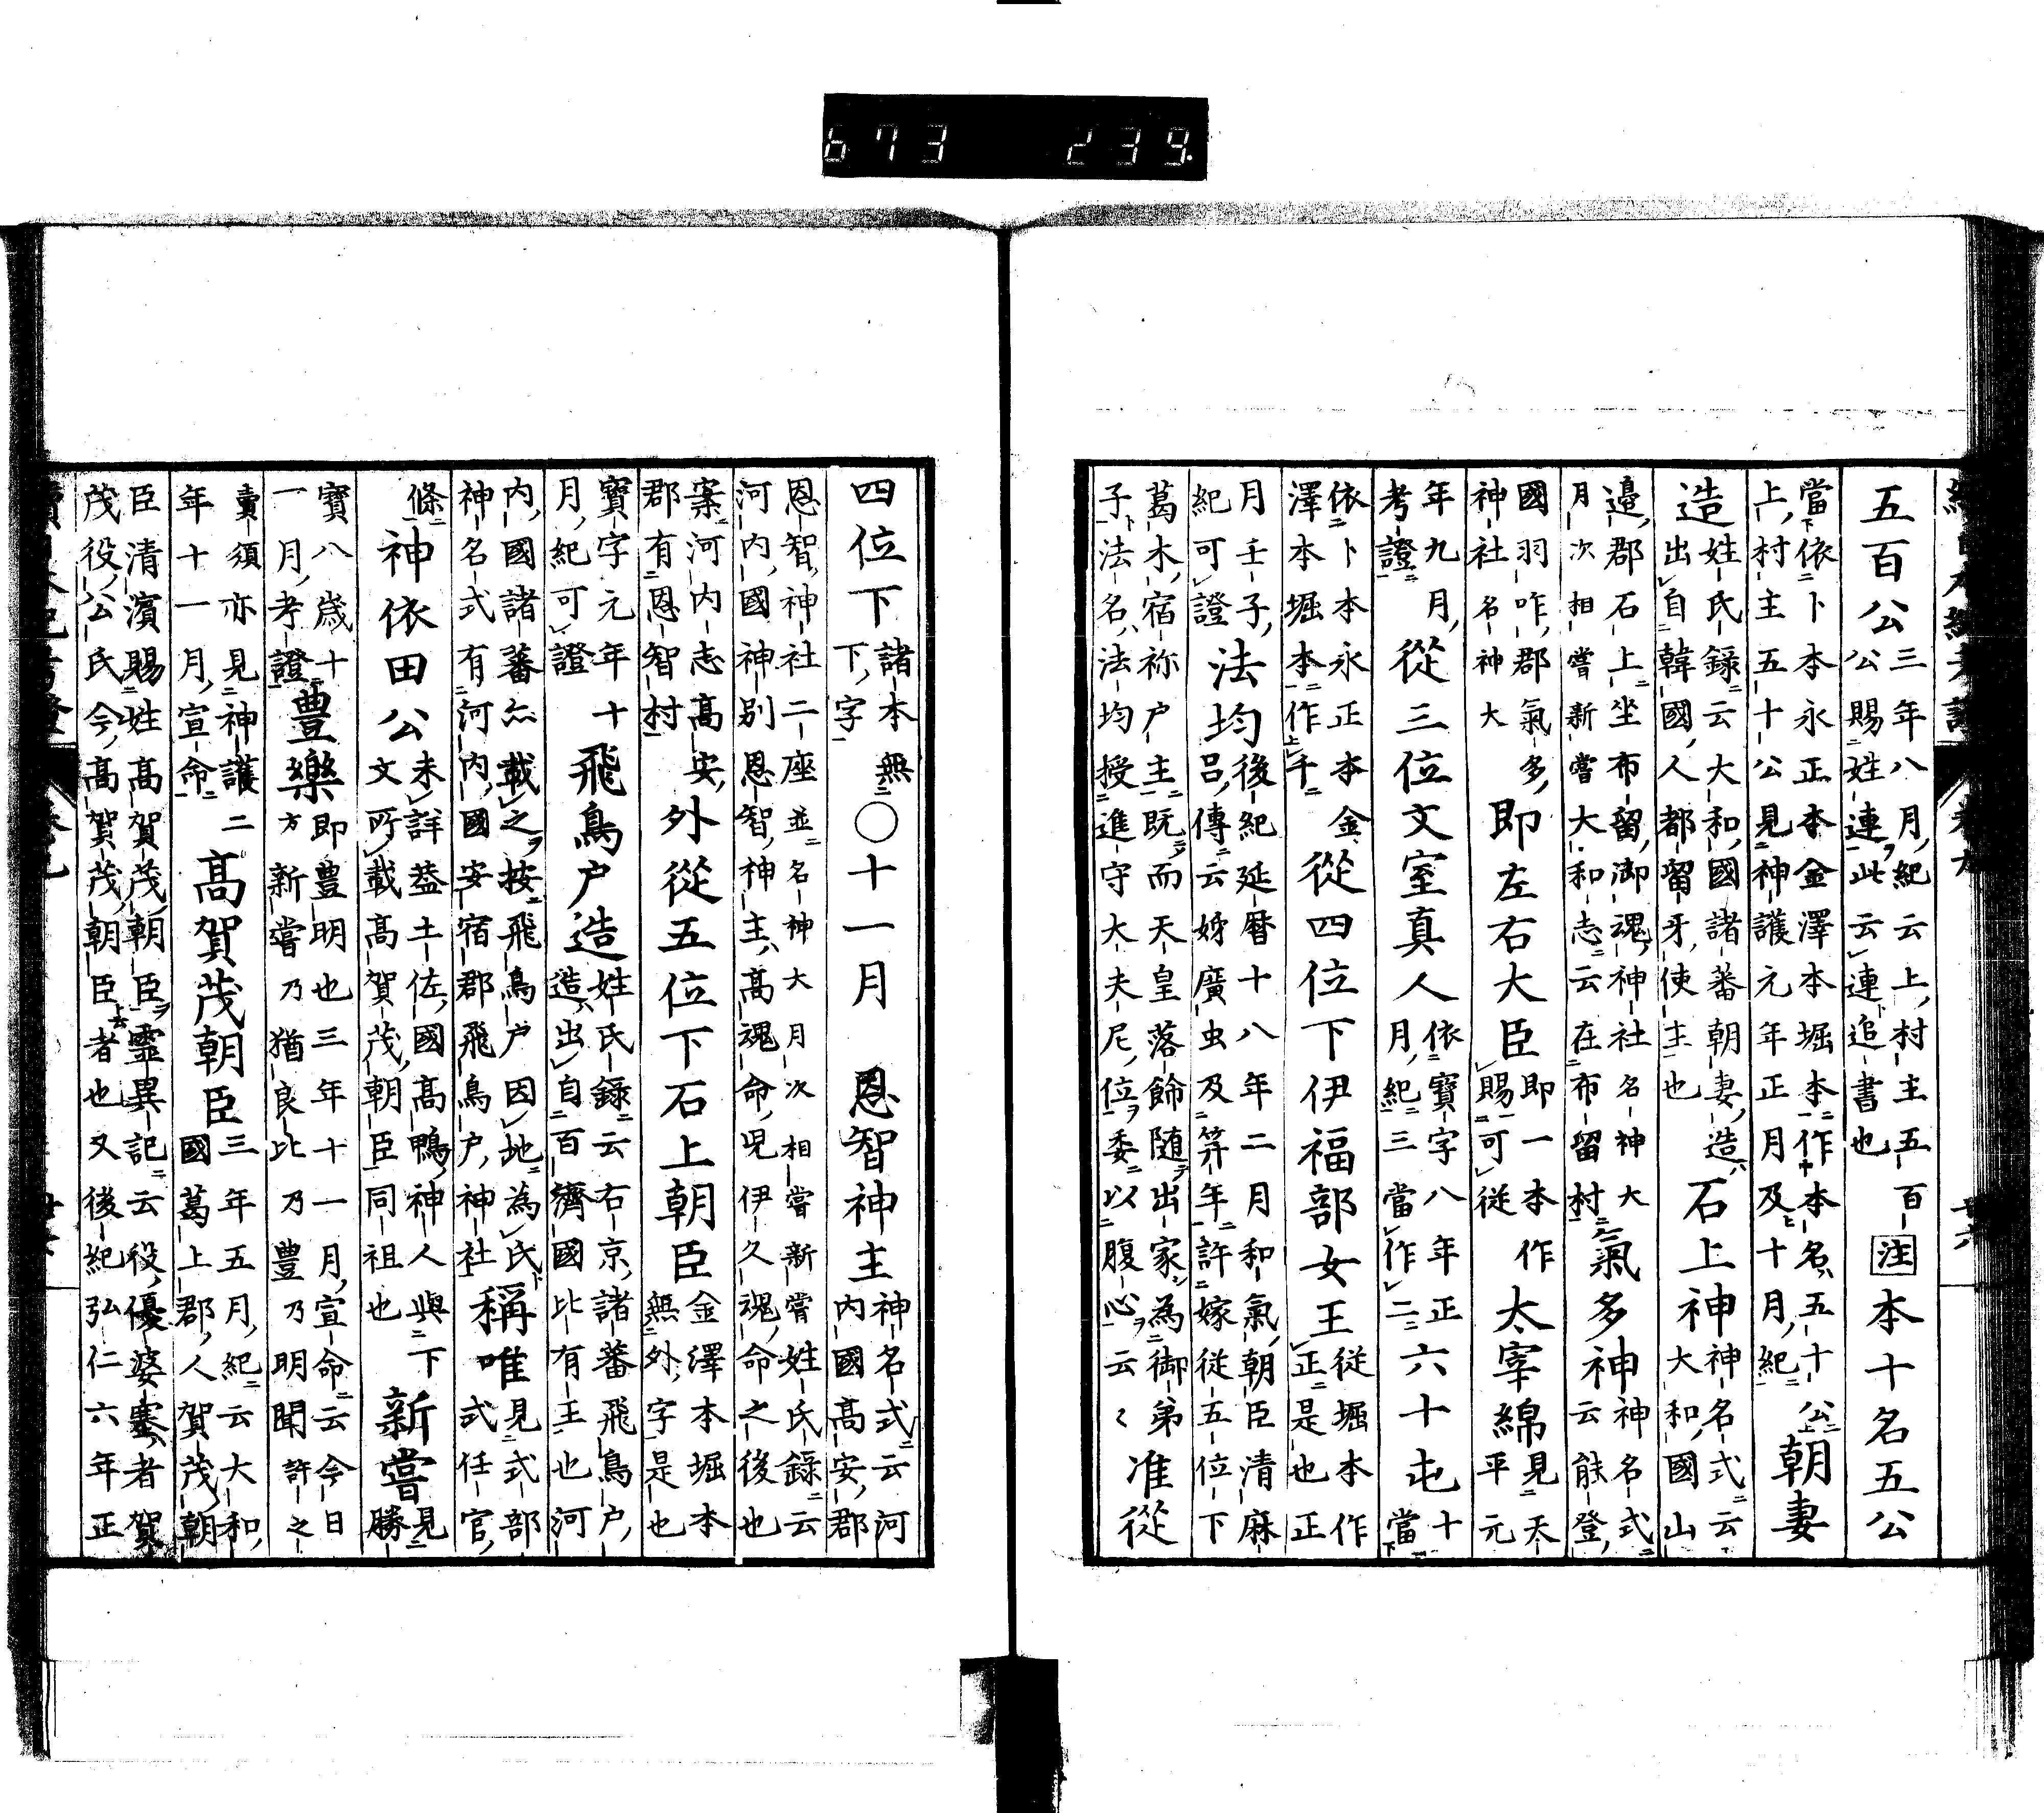 五百公三年八月紀云上村主五百公賜姓連此云連追書也 注 本十名五公
當依卜本永正本金澤本堀本作本名五十公上村主五十公見神護元年正月及十月紀 朝妻
造姓氏録云大和國諸蕃朝妻造出自韓國人都留牙使主也 石上神神名式云大和國山
邉郡石上坐布留御魂神社名神大月次相嘗新嘗大和志云在布留村 氣多神神名式云能登
國羽咋郡氣多神社名神大 即左右大臣即一本作賜可従 太宰綿見天平元
年九月考證 從三位文室真人依寶字八年正月紀三當作二 六十屯十當
依卜本永正本金澤本堀本作千 從四位下伊福部女王從堀本作正是也正
月壬子紀可證 法均後紀延暦十八年二月和氣朝臣清麻呂傳云姊廣虫及笄年許嫁從五位下
葛木宿祢戸主既而天皇落餙随出家為御弟子法名法均授進守大夫尼位委以腹心云々 准從
四位下諸本無下字 ○十一月 恩智神主神名式云河内國高安郡
恩智神社二座並名神大月次相嘗新嘗姓氏録云河内國神別恩智神主高魂命兒伊久魂命之後也
案河内志高安郡有恩智村 外從五位下石上朝臣金澤本堀本無外字是也
寶字元年十月紀可證 飛鳥戸造姓氏録云右京諸蕃飛鳥戸造出自百濟國比有王也河
内國諸蕃亦載之按飛鳥戸因地為氏神名式有河内國安宿郡飛鳥戸神社 稱唯見式部式任官
條 神依田公未詳葢土佐國高鴨神人與下文所載高賀茂朝臣同祖也 新嘗見勝
寶八歳十一月考證 豊樂即豊明也三年十一月宣命云今日方新嘗乃猶良比乃豊乃明聞許之
賣須亦見神護二年十一月宣命 高賀茂朝臣三年五月紀云大和國葛上郡人賀茂朝
臣清濱賜姓高賀茂朝臣靈異記云役優婆塞者賀茂役公氏今高賀茂朝臣者也又後紀弘仁六年正